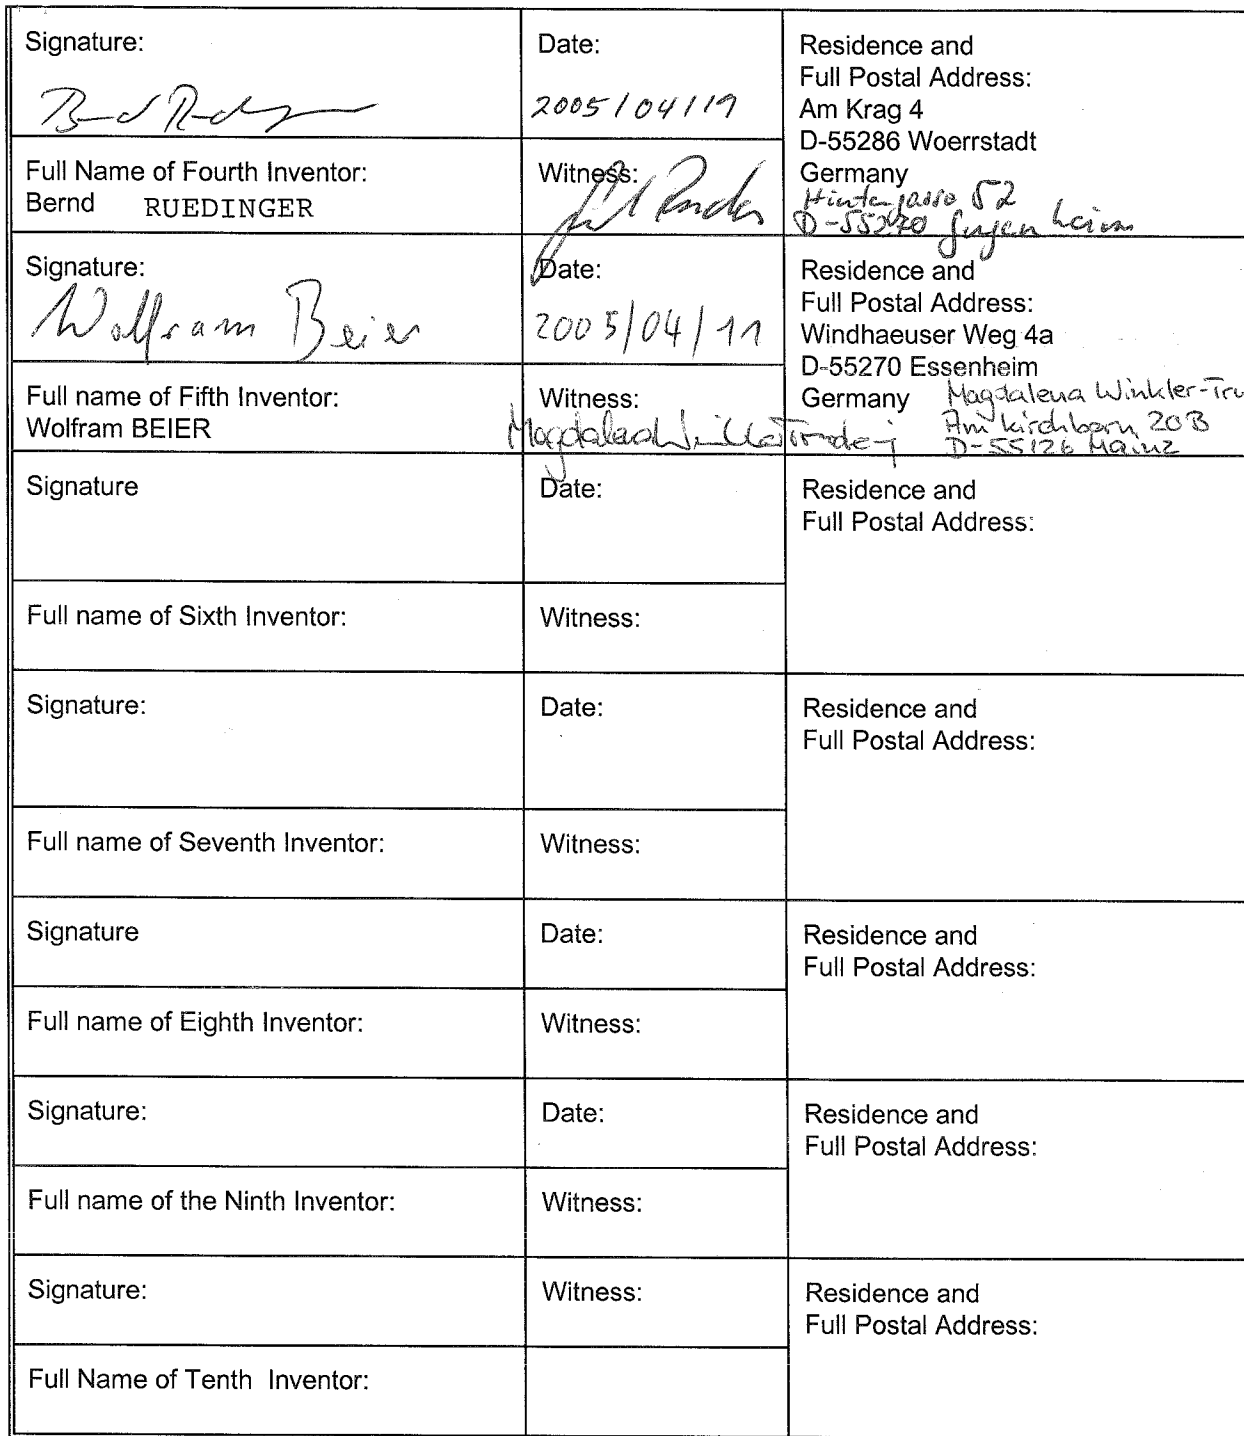 Signature:
Date:
Residence and
Full Postal Address:
Am Krag 4
D-55286 Woerrstadt
Germany
2005/04/19
Full Name of Fourth Inventor:
Bernd RUEDINGER
Witness:
52
D-55270
Signature:
Wolfram Beier
Date:
2005/04/11
Residence and
Full Postal Address:
Windhaeuser Weg 4a
D-55270 Essenheim
Germany
Full name of Fifth Inventor:
Wolfram BEIER
Witness:
Magdalena Winkler-Tru
Am Kirchborn 20B
D-55126 Mainz
Signature
Date:
Residence and
Full Postal Address:
Full name of Sixth Inventor:
Witness:
Signature:
Date:
Residence and
Full Postal Address:
Full name of Seventh Inventor:
Witness:
Signature
Date:
Residence and
Full Postal Address:
Full name of Eighth Inventor:
Witness:
Signature:
Date:
Residence and
Full Postal Address:
Full name of the Ninth Inventor:
Witness:
Signature:
Witness:
Residence and
Full Postal Address:
Full Name of Tenth Inventor: